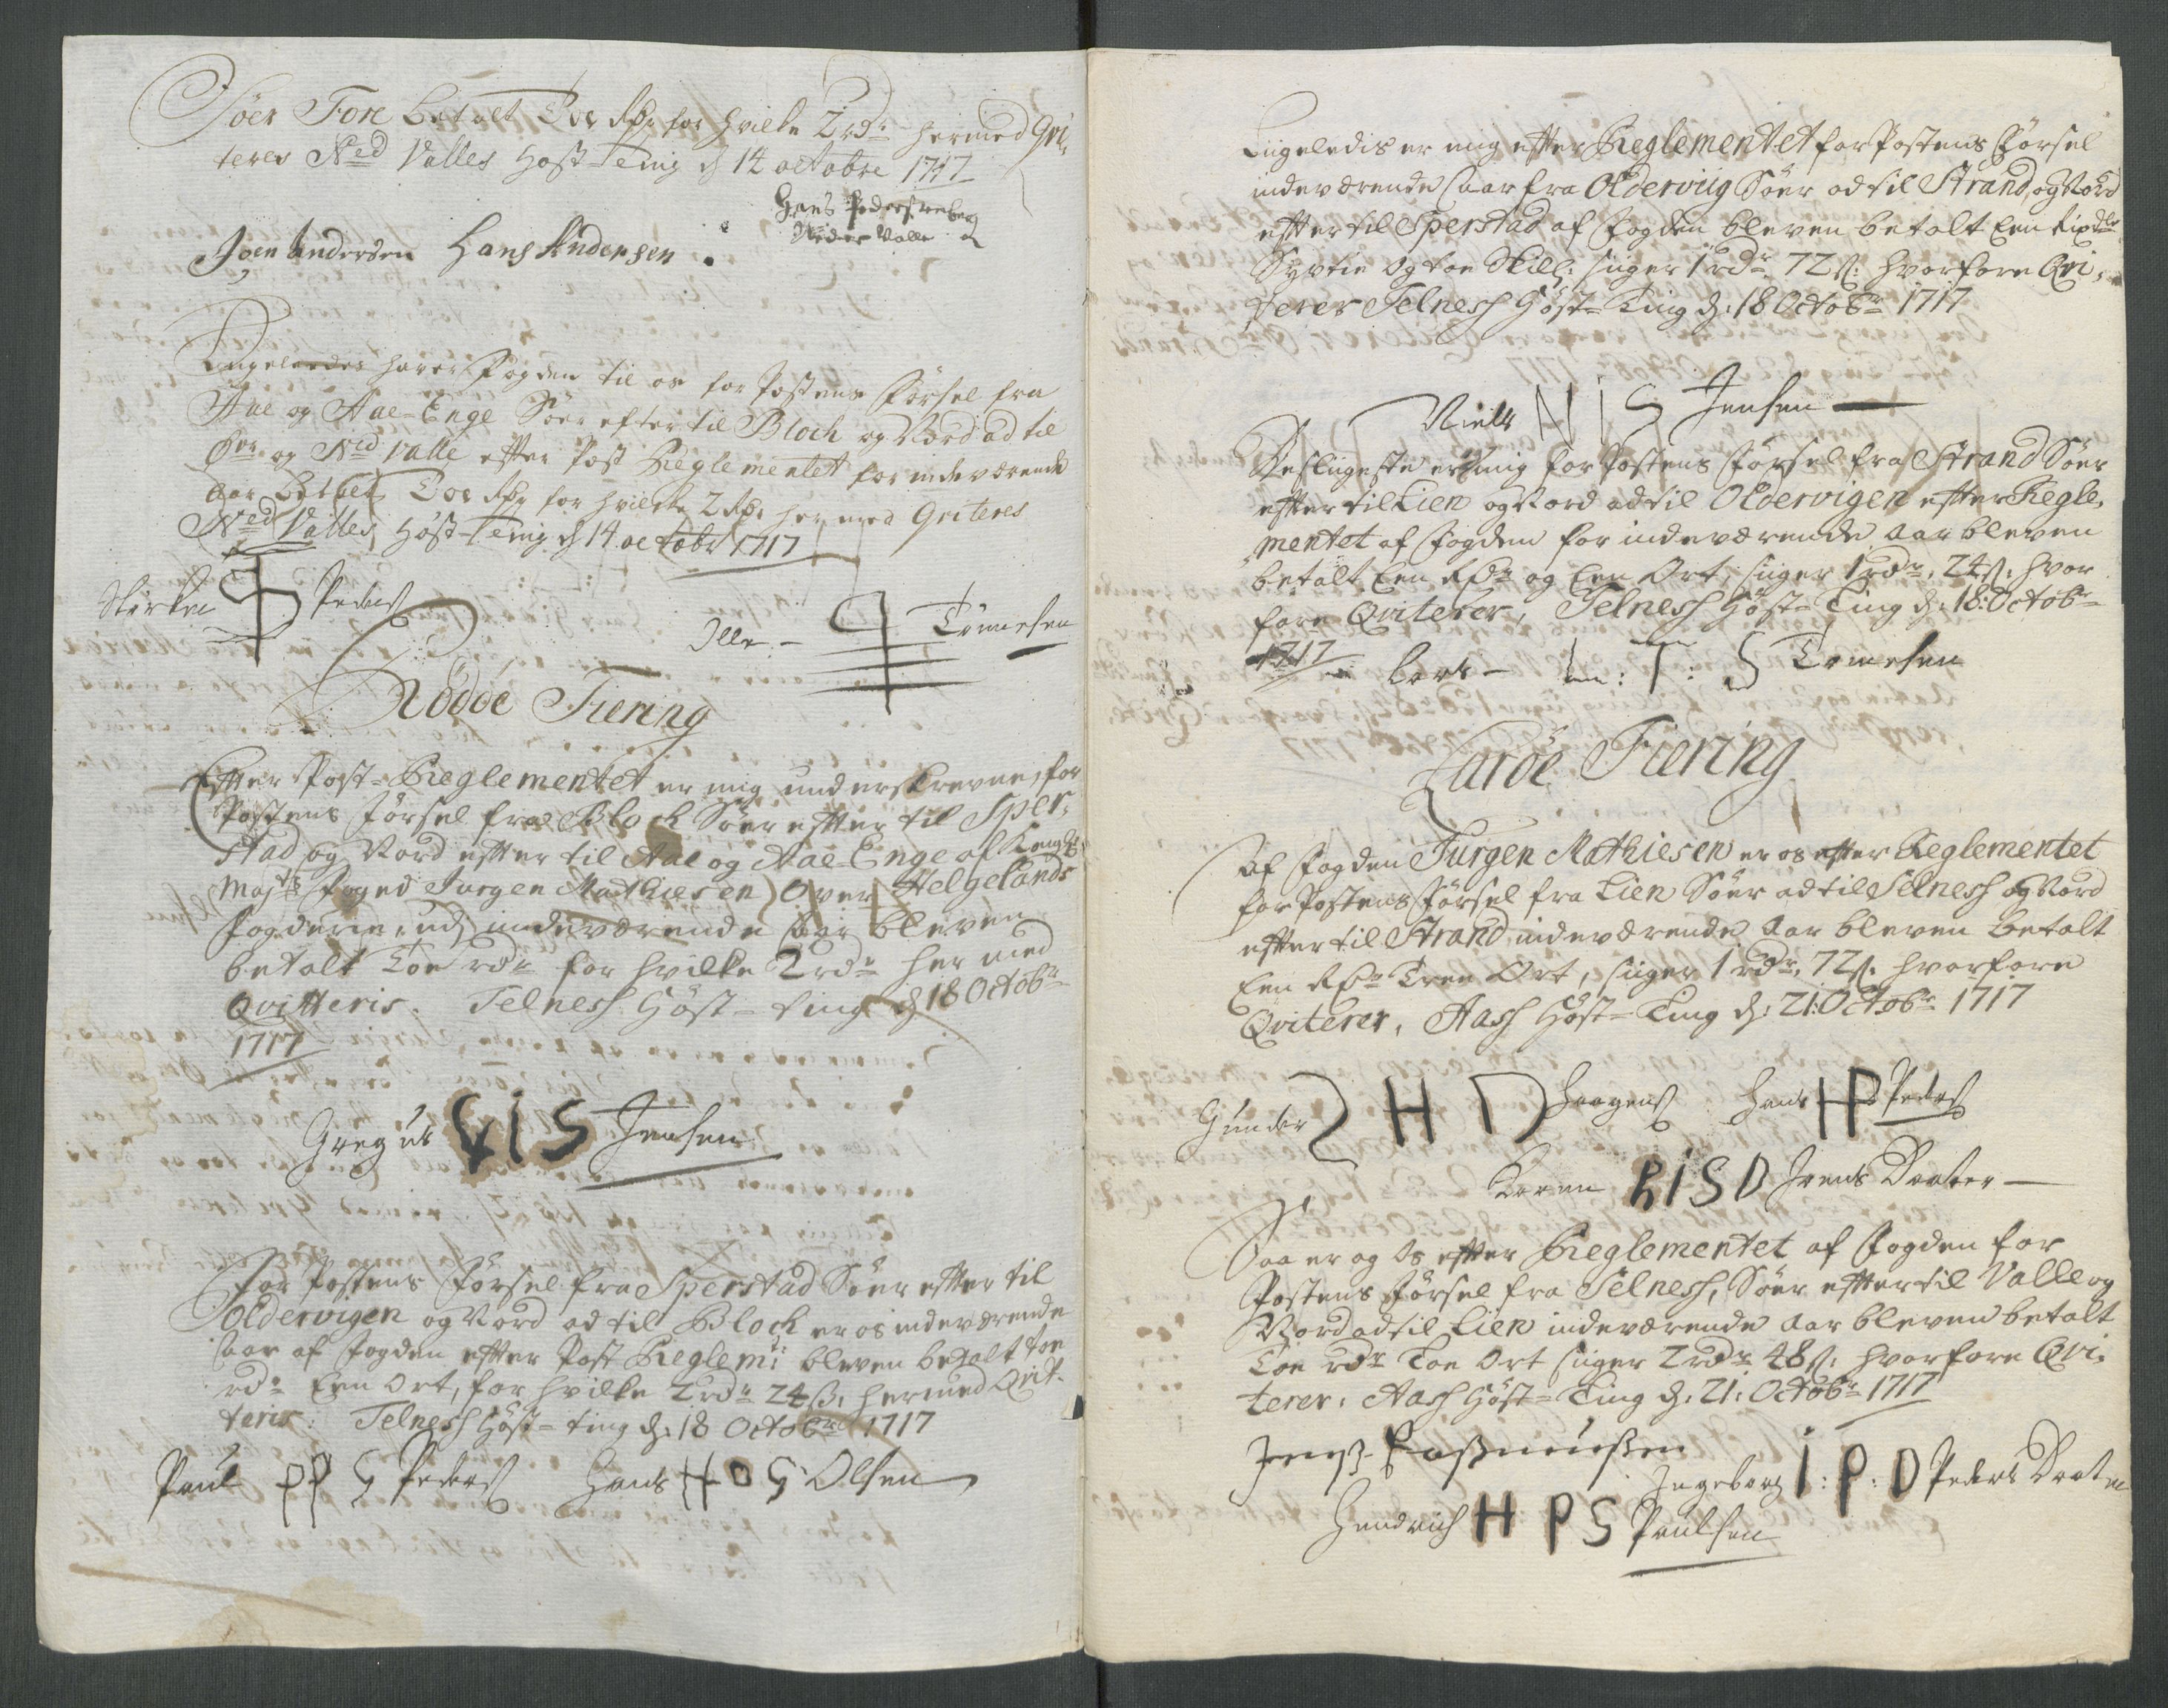 Söer Fore betalt Toe Rdr for hvilke 2 rdr hermed Qvi-
teres Ned Valles Höst-Ting d 14 octobre 1717
Hans Pedersen
Neder Valle
Joen Andersen Hans Andersen
Liigeledes haver Fogden til os for Postens Försel fra
Aae og Aae-Enge Söer efter til Bloch og Nord ad til
Över og Ned Valle efter Post Reglementet for indeværende
Aar betalt Toe Rdr for hvilke 2 Rdr hermed Qviteres
Ned Valles Höst-Ting d 14 octobr 1717
Peders
Olle - Tönnesen
Rödöe Fiering
Effter Post-Reglementet er mig underskrevne, for
Postens Försel fra Bloch Söer effter til Sper-
stad og Nord effter til Aae og Aae-Enge af Kongl:
Majts Foged Jurgen Mathiesen Over Helgelands
Fogderie udj indeværende Aar bleven
betalt Toe rdr for hvilke 2 rdr her med
Qvitteris. Telness Höst-ting d 18 Octobr
1717
Gregus GIS Jensen
For Postens Försel fra Sperstad Söer effter til
Oldervigen og Nord ad til Bloch er os indeværende
Aar af Fogden effter Post Reglemt: bleven betalt toe
rdr Een Ort, for hvilke 2 rdr 24 ß, hermed Qvit-
teris: Telness Höst-ting d: 18 Octobre 1717
Paul PPS Peders Hans HOS Olsen
Liigeledis er mig effter Reglementet for Postens Försel
indeværende Aar fra Olderviig Söer ad til Strand, og Nord
effter til Sperstad af Fogden bleven betalt Een Rixdlr
Syvtie og toe Skill: siiger 1 rdr 72 ß: hvorfore Qvi-
terer Telness Höst-Ting d: 18 Octobr 1717
Niels NIS Jensen
Desliigeste er mig for Postens Försel fra Strand Söer
effter til Lien og Nord ad til Oldervigen effter Regle-
mentet af Fogden for indeværende Aar bleven
betalt Een Rdr og Een Ort, siiger 1 rdr, 24 ß, hvor
fore Qviterer, Telness Höst-Ting d: 18: Octobr
1717 Lars - L: T: S Tomesen
Luröe Fiering
Af Fogden Jurgen Mathiesen er os effter Reglementet
for Postens Försel fra Lien Söer ad til Selness og Nord
effter til Strand indeværende Aar bleven betalt
Een Rdr Tree Ort, siiger 1 rdr, 72 ß, hvorfore
Qviterer, Aash Höst-Ting d: 21: Octobr 1717
Gunder HD Haagens Hans HP Peders
Karen KISD Jens Daater
Saa er og Os effter Reglementet af Fogden for
Postens Försel fra Selness, Söer effter til Valle og
Nord ad til Lien indeværende Aar bleven betalt
Toe rdr Toe Ort siiger 2 rdr 48 ß, hvorfore Qvi-
terer, Aash Höst-Ting d: 21: Octobr 1717
Jenß Raßmußen
Ingeborg I: P: D Peders Daater
Hendrich HPS Paulsen